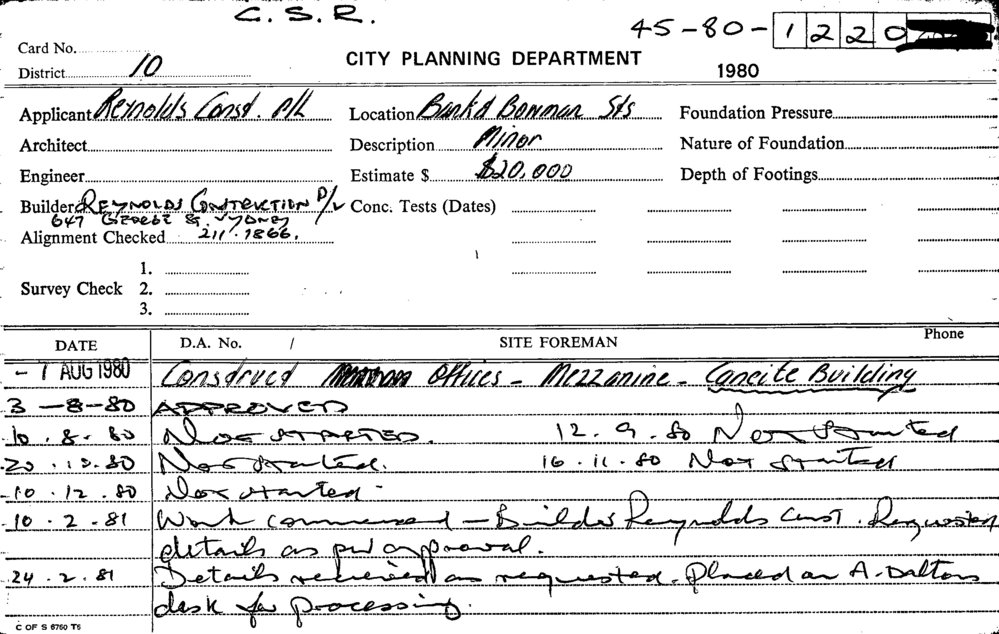 C.S.R.
45-80-1220
Card No.
District 10
CITY PLANNING DEPARTMENT
1980
Applicant Reynolds Const. P/L
Location Bank & Bowman Sts
Foundation Pressure
Architect
Description Minor
Nature of Foundation
Engineer
Estimate $ $20,000
Depth of Footings
Builder REYNOLDS CONSTRUCTION P/L
Conc. Tests (Dates)
647 GEORGE St. SYDNEY
Alignment Checked 211.1866.
1.
Survey Check 2.
3.
DATE
D.A. No. /
SITE FOREMAN
Phone
- 7 AUG 1980 Construct Offices - Mezzanine - Caneite Building
3 -8-80 APPROVED
10.8.80 Not STARTED. 12.9.80 Not Started
20.10.80 Not Started. 16.11.80 Not Started
10.12.80 Not Started -
10.2.81 Work commenced - Builder Reynolds Const. Requested
details as per approval.
24.2.81 Details received as requested. Placed on A. Daltons
desk for processing.
C OF S 6760 T5